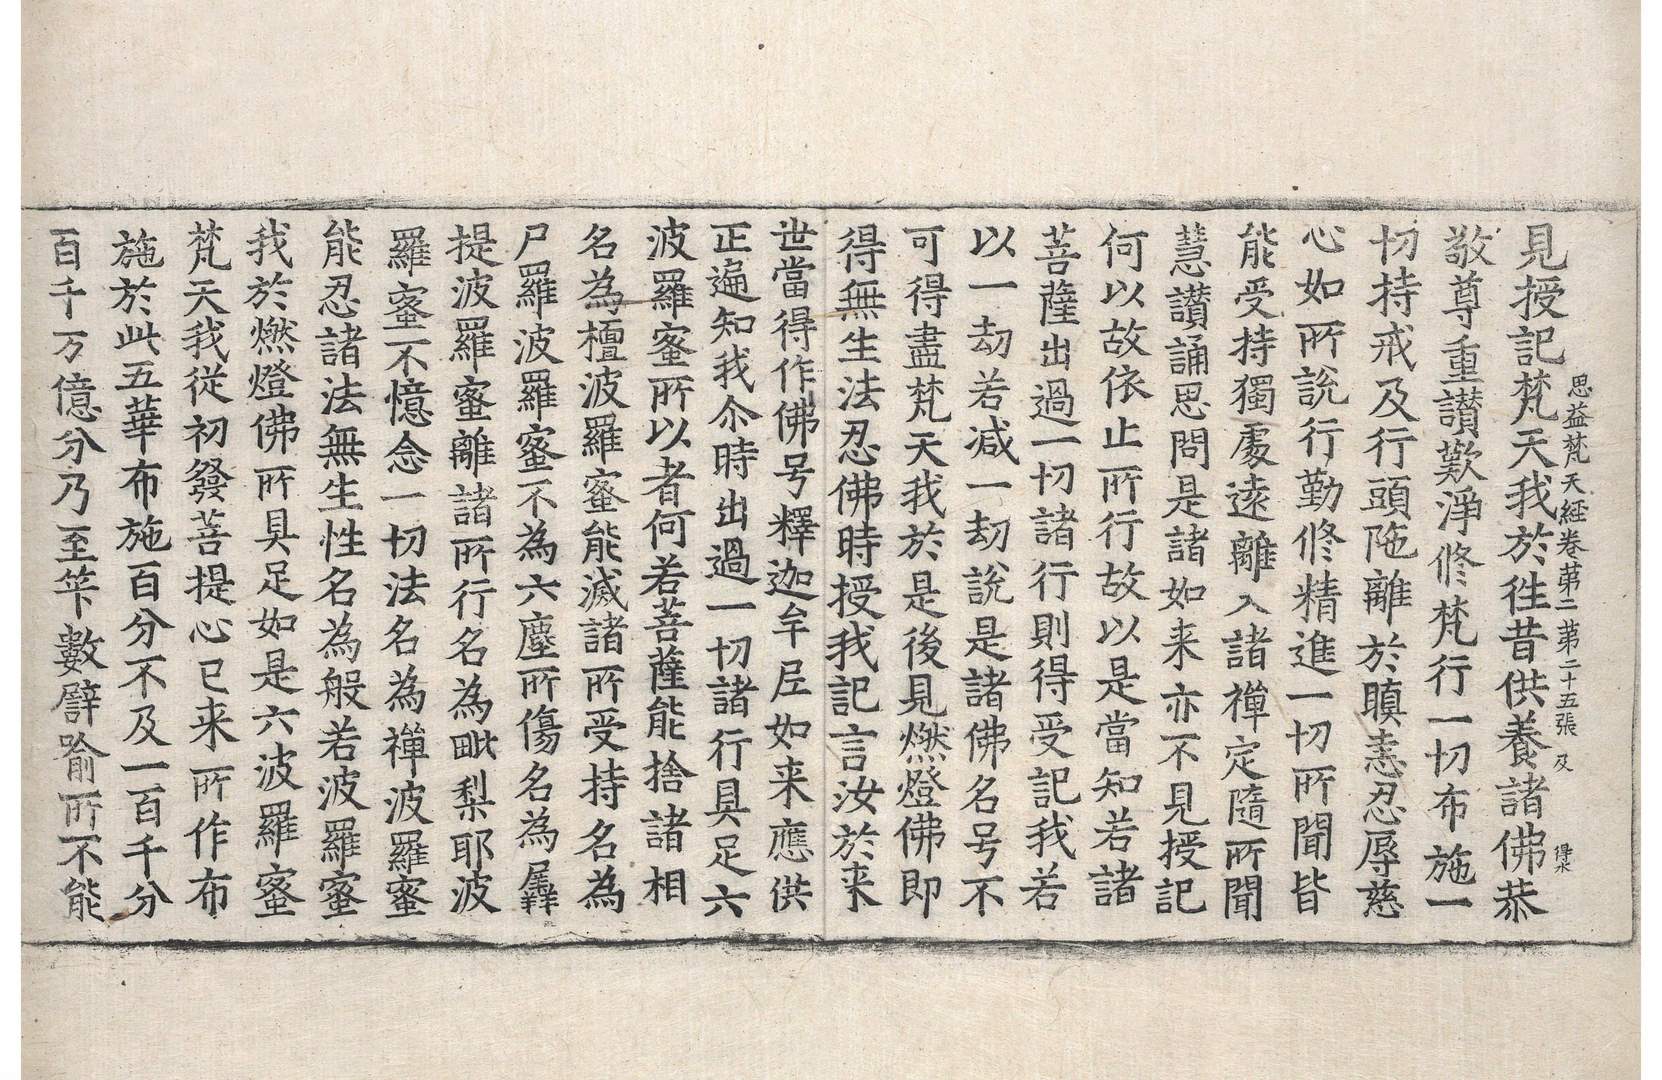 思益梵天経巻第二 第二十五張 及 得水
見授記梵天我於徃昔供養諸佛恭
敬尊重讃歎淨修梵行一切布施一
切持戒及行頭陁離於瞋恚忍辱慈
心如所說行勤修精進一切所聞皆
能受持獨處遠離入諸禪定隨所聞
慧讃誦思問是諸如来亦不見授記
何以故依止所行故以是當知若諸
菩薩出過一切諸行則得受記我若
以一劫若减一劫說是諸佛名号不
可得盡梵天我於是後見燃燈佛即
得無生法忍佛時授我記言汝於来
世當得作佛号釋迦牟尼如来應供
正遍知我尒時出過一切諸行具足六
波羅蜜所以者何若菩薩能捨諸相
名為檀波羅蜜能滅諸所受持名為
尸羅波羅蜜不為六塵所傷名為羼
提波羅蜜離諸所行名為毗梨耶波
羅蜜不憶念一切法名為禪波羅蜜
能忍諸法無生性名為般若波羅蜜
我於燃燈佛所具足如是六波羅蜜
梵天我從初發菩提心已来所作布
施於此五華布施百分不及一百千分
百千万億分乃至筭數譬喻所不能